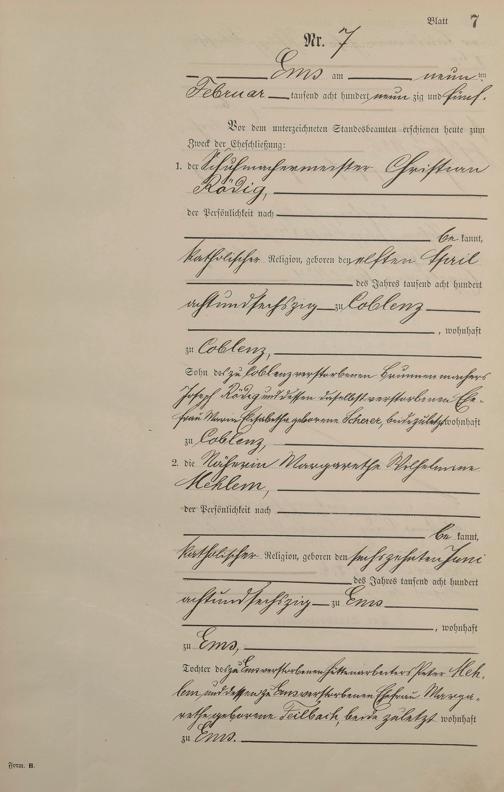 Blatt 7
Nr. 7
Ems am neun ten
Februar tausend acht hundert neun zig und fünf.
Vor dem unterzeichneten Standesbeamten erschienen heute zum
Zweck der Eheschließung:
1. der Schuhmachermeister Christian
Rödig,
der Persönlichkeit nach
be kannt,
katholischer Religion, geboren den elften April
des Jahres tausend acht hundert
achtundsechszig zu Coblenz
, wohnhaft
zu Coblenz,
Sohn des zu Coblenz verstorbenen Brunnenmachers
Joseph Rödig und dessen daselbst verstorbenen Ehe-
frau Maria Elisabetha geborene Scherer, beide zuletzt wohnhaft
zu Coblenz,
2. die Näherin Margarethe Wilhelmine
Mehlem,
der Persönlichkeit nach
be kannt,
katholischer Religion, geboren den sechszehnten Juni
des Jahres tausend acht hundert
achtundsechszig zu Ems
, wohnhaft
zu Ems,
Tochter des zu Ems verstorbenen Hüttenarbeiters Peter Meh-
lem, und dessen zu Ems verstorbenen Ehefrau Marga-
rethe geborene Feilbach, beide zuletzt wohnhaft
zu Ems.
Form. B.